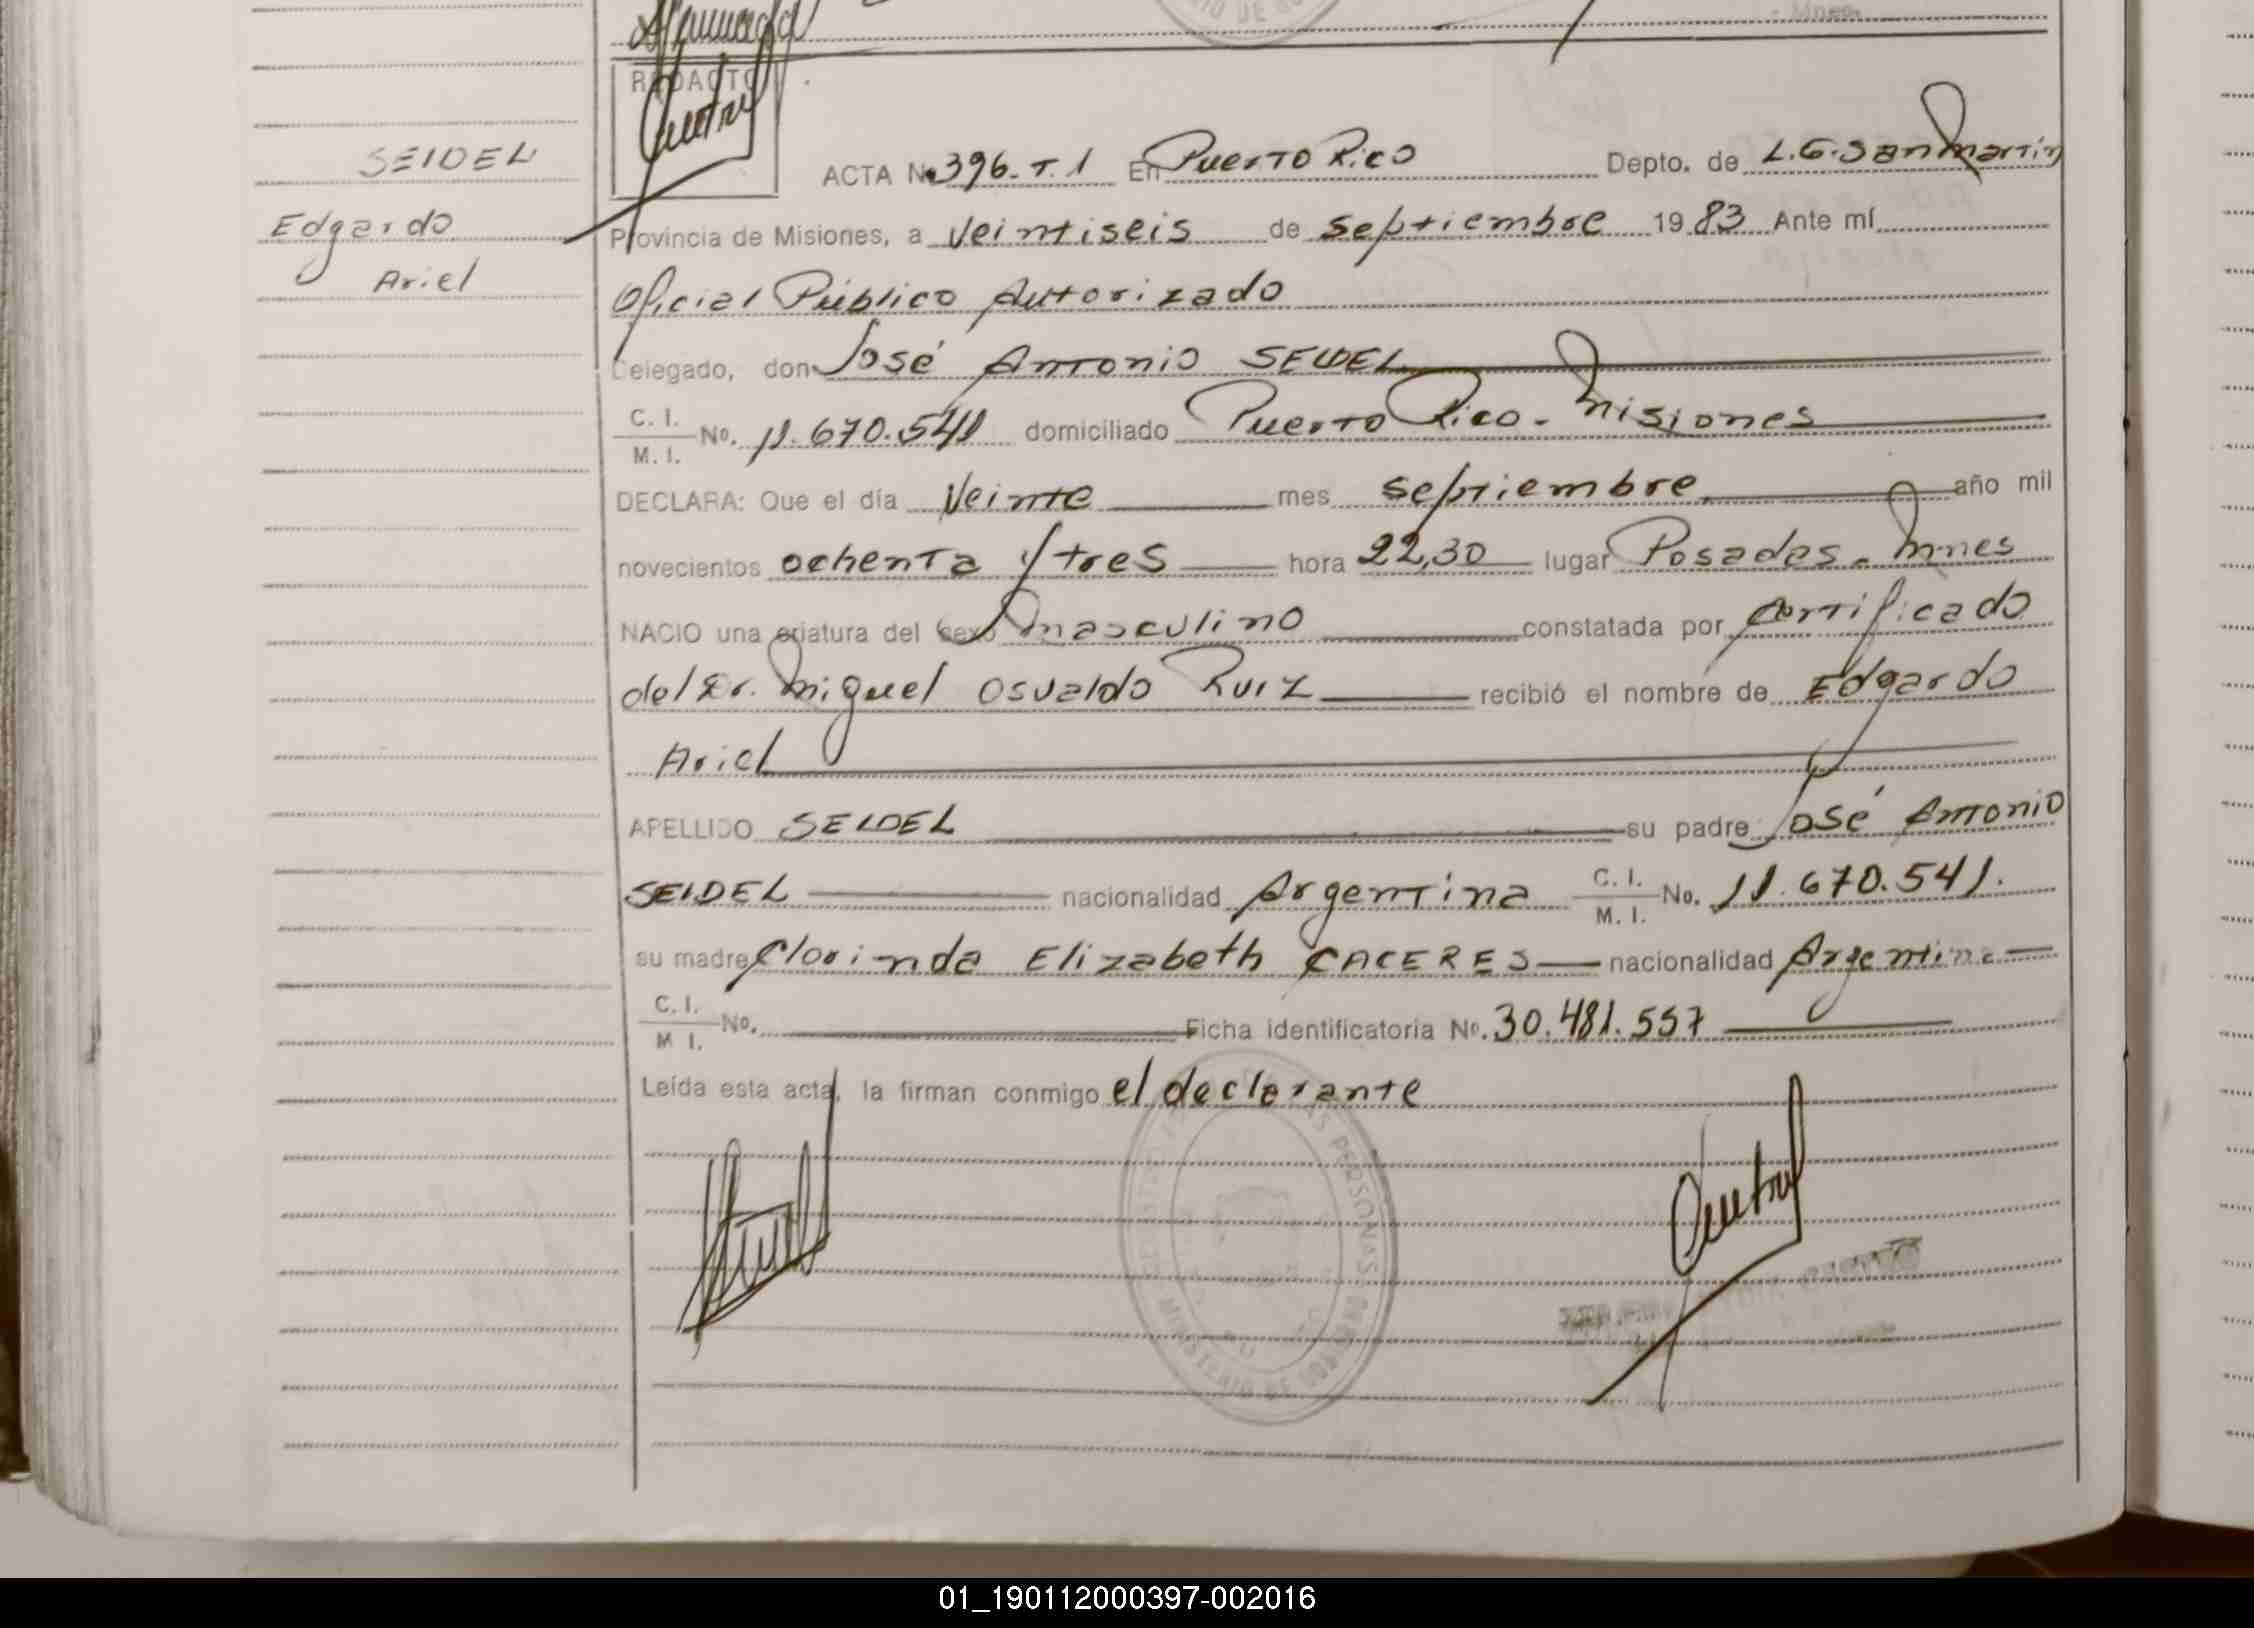 REDACTO
SEIDEL
Edgardo
Ariel
ACTA No 396. T. 1 En Puerto Rico Depto. de L.G. San Martín
Provincia de Misiones, a Veintiseis de Septiembre 19 83 Ante mí
Oficial Público Autorizado
Delegado, don José Antonio SEIDEL
C. I.
M. I. No. 11.670.541 domiciliado Puerto Rico - Misiones
DECLARA: Que el día Veinte mes septiembre año mil
novecientos ochenta y tres hora 22,30 lugar Posadas - Mnes
NACIO una criatura del sexo masculino constatada por certificado
del Dr. Miguel Osvaldo Ruiz recibió el nombre de Edgardo
Ariel
APELLIDO SEIDEL su padre José Antonio
SEIDEL nacionalidad Argentina C. I. M. I. No. 11.670.541.
su madre Clorinda Elizabeth CACERES nacionalidad Argentina
C. I.
M I. No. Ficha identificatoria No. 30.481.557
Leída esta acta, la firman conmigo el declarante
PERSONAS
MINISTERIO DE
01_190112000397-002016